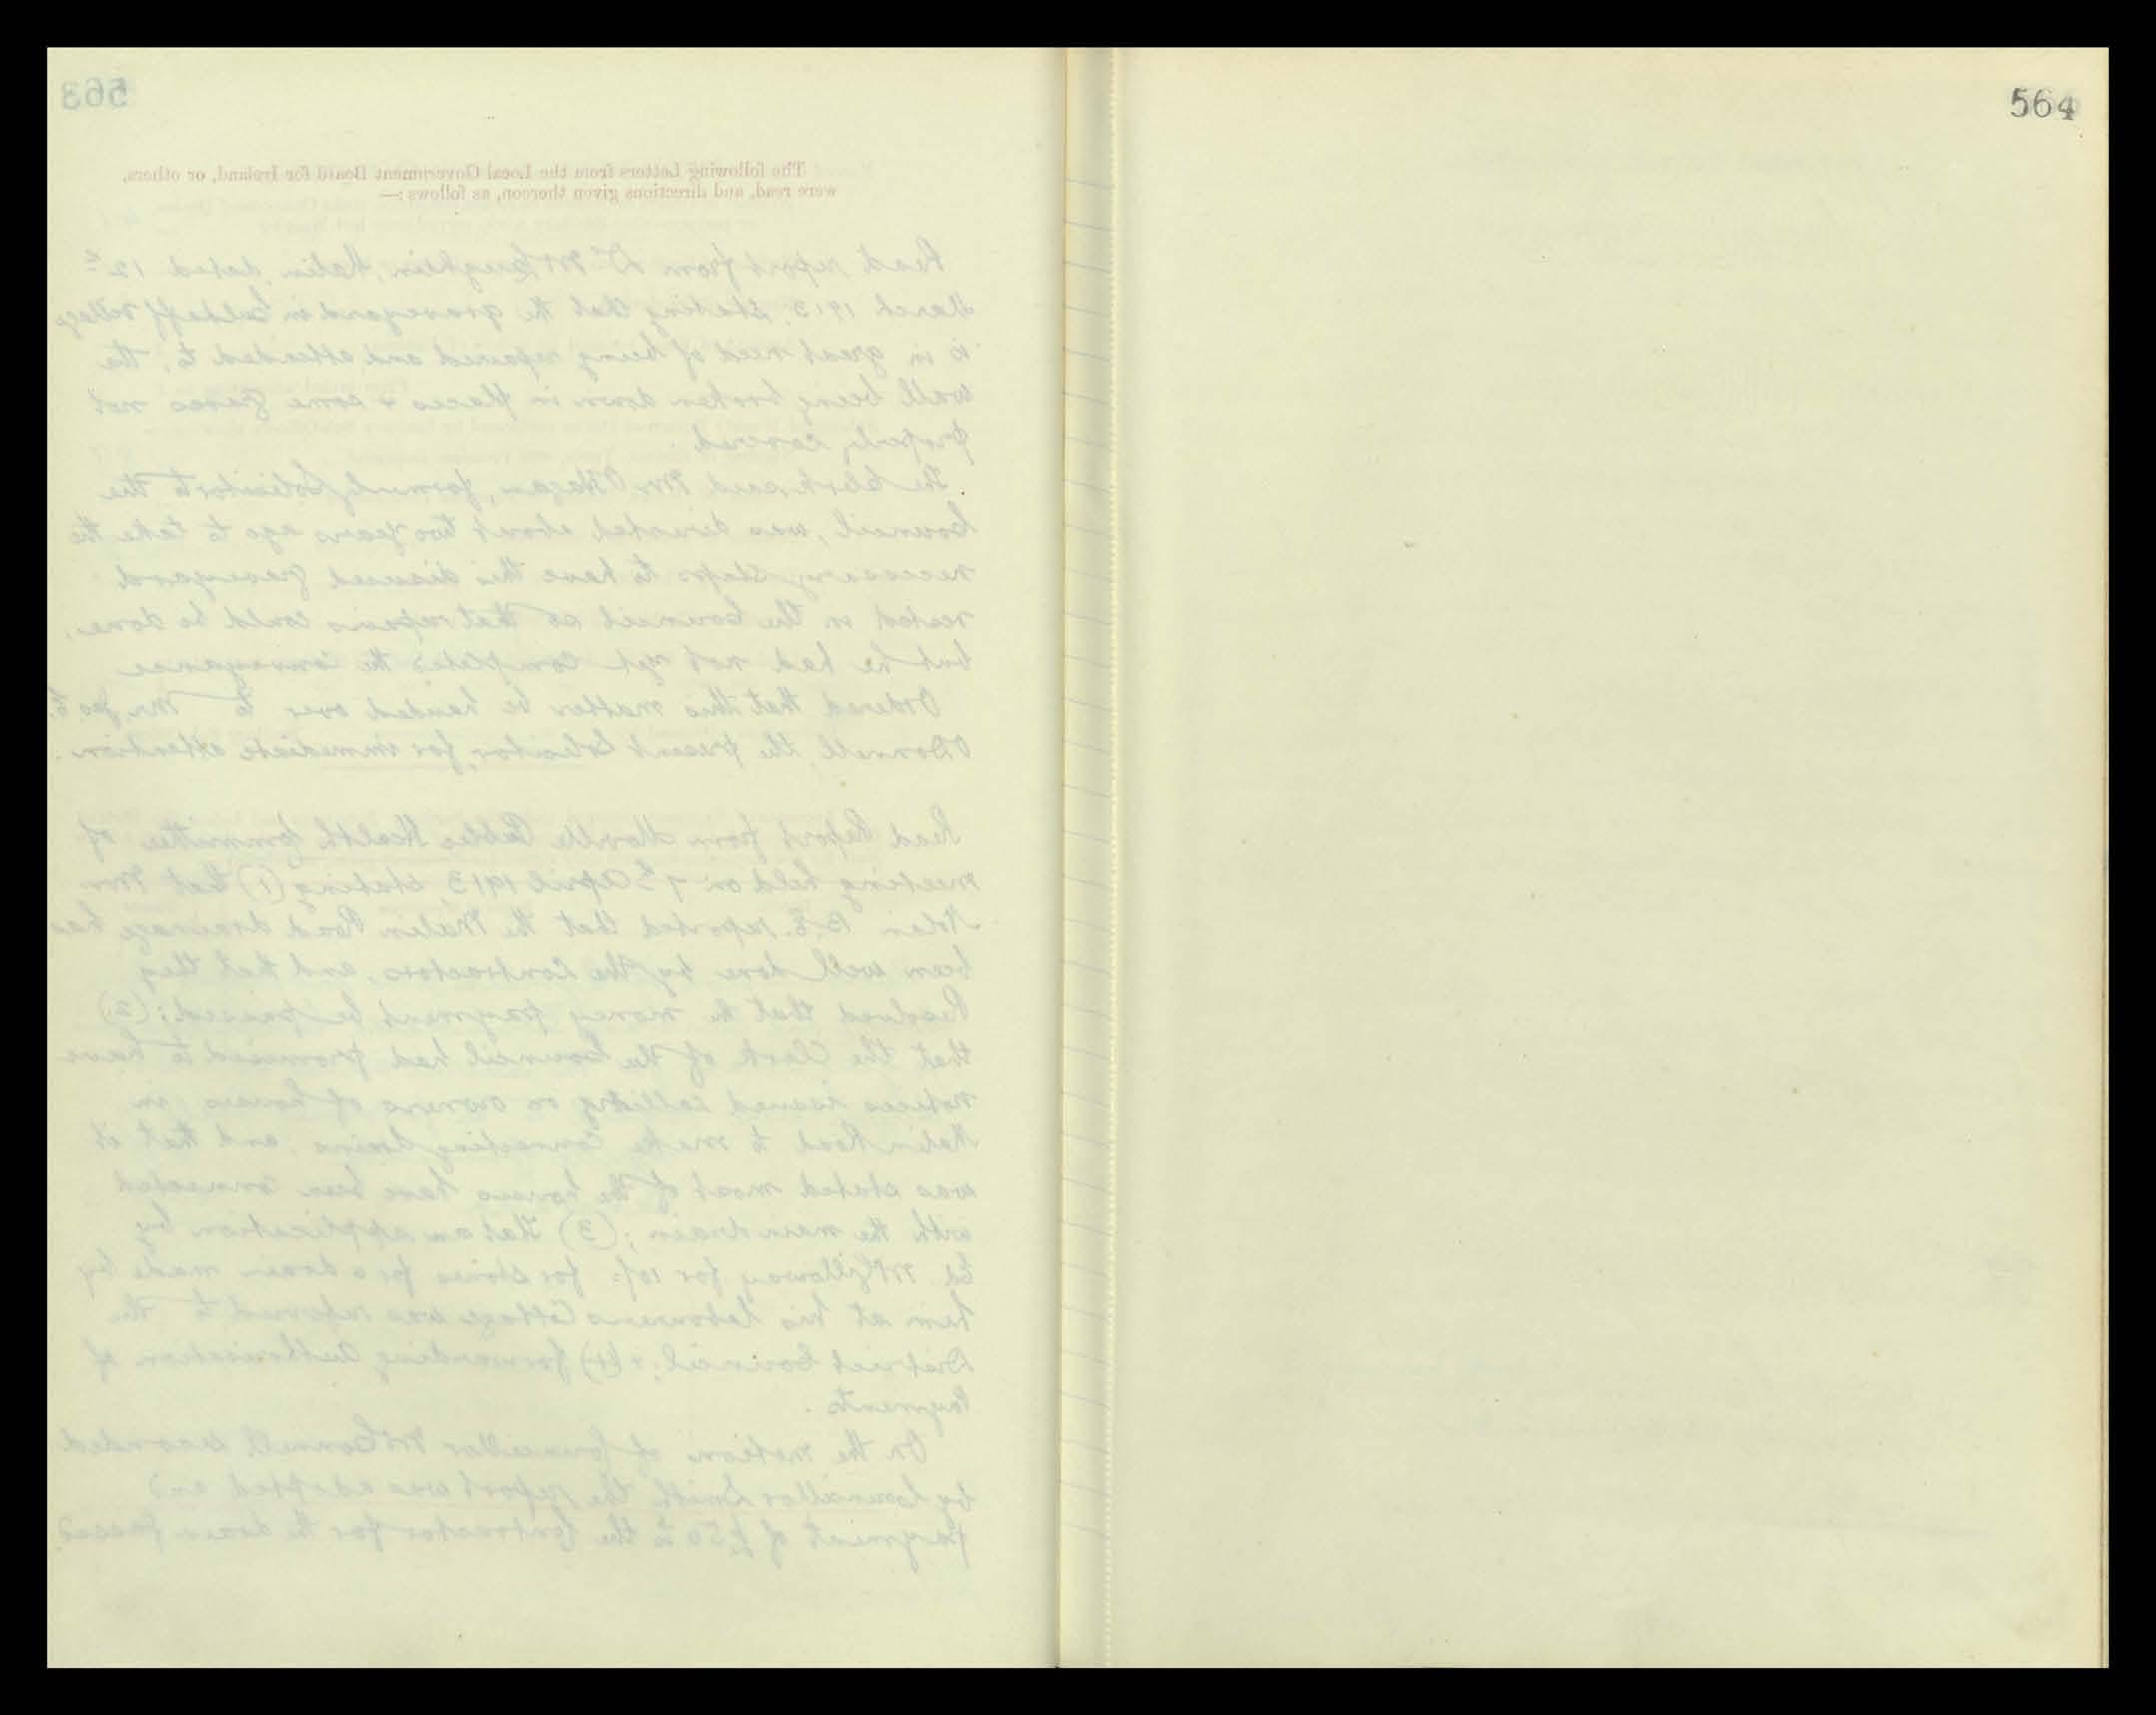 563
The following Letters from the Local Government Board for Ireland, or others,
were read, and directions given thereon, as follows :—
Read report from Dr McLaughlin, Malin, dated 12th
March 1913, stating that the graveyard in Culdaff Village
is in great need of being repaired and attended to, the
wall being broken down in places & some graves not
properly covered.
The Clerk said Mr O'Hagan, formerly Solicitor to the
Council, was directed about two years ago to take the
necessary steps to have this disused graveyard
vested in the Council so that repairs could be done,
but he had not yet completed the conveyance
Ordered that this matter be handed over to Mr
O'Donnell, the present Solicitor, for immediate attention.
Read Report from Moville Public Health Committee of
meeting held on 7th April 1913, stating (1) that Mr
Nolan B.E. reported that the Malin Road drainage has
been well done by the Contractors, and that they
Resolved that the money payment be passed; (2)
that the Clerk of the Council had promised to have
notices issued calling on owners of houses in
Malin Road to make connecting drains, and that it
was stated most of the houses have been connected
with the main drain; (3) that an application by
Ed. McGilloway for 10/- for stones for a drain made by
him at his labourers Cottage was referred to the
District Council; & (4) forwarding authorisation of
Payments.
On the motion of Councillor McConnell seconded
by Councillor Smith the report was adopted and
payment of £50 to the Contractor for the drain passed
564